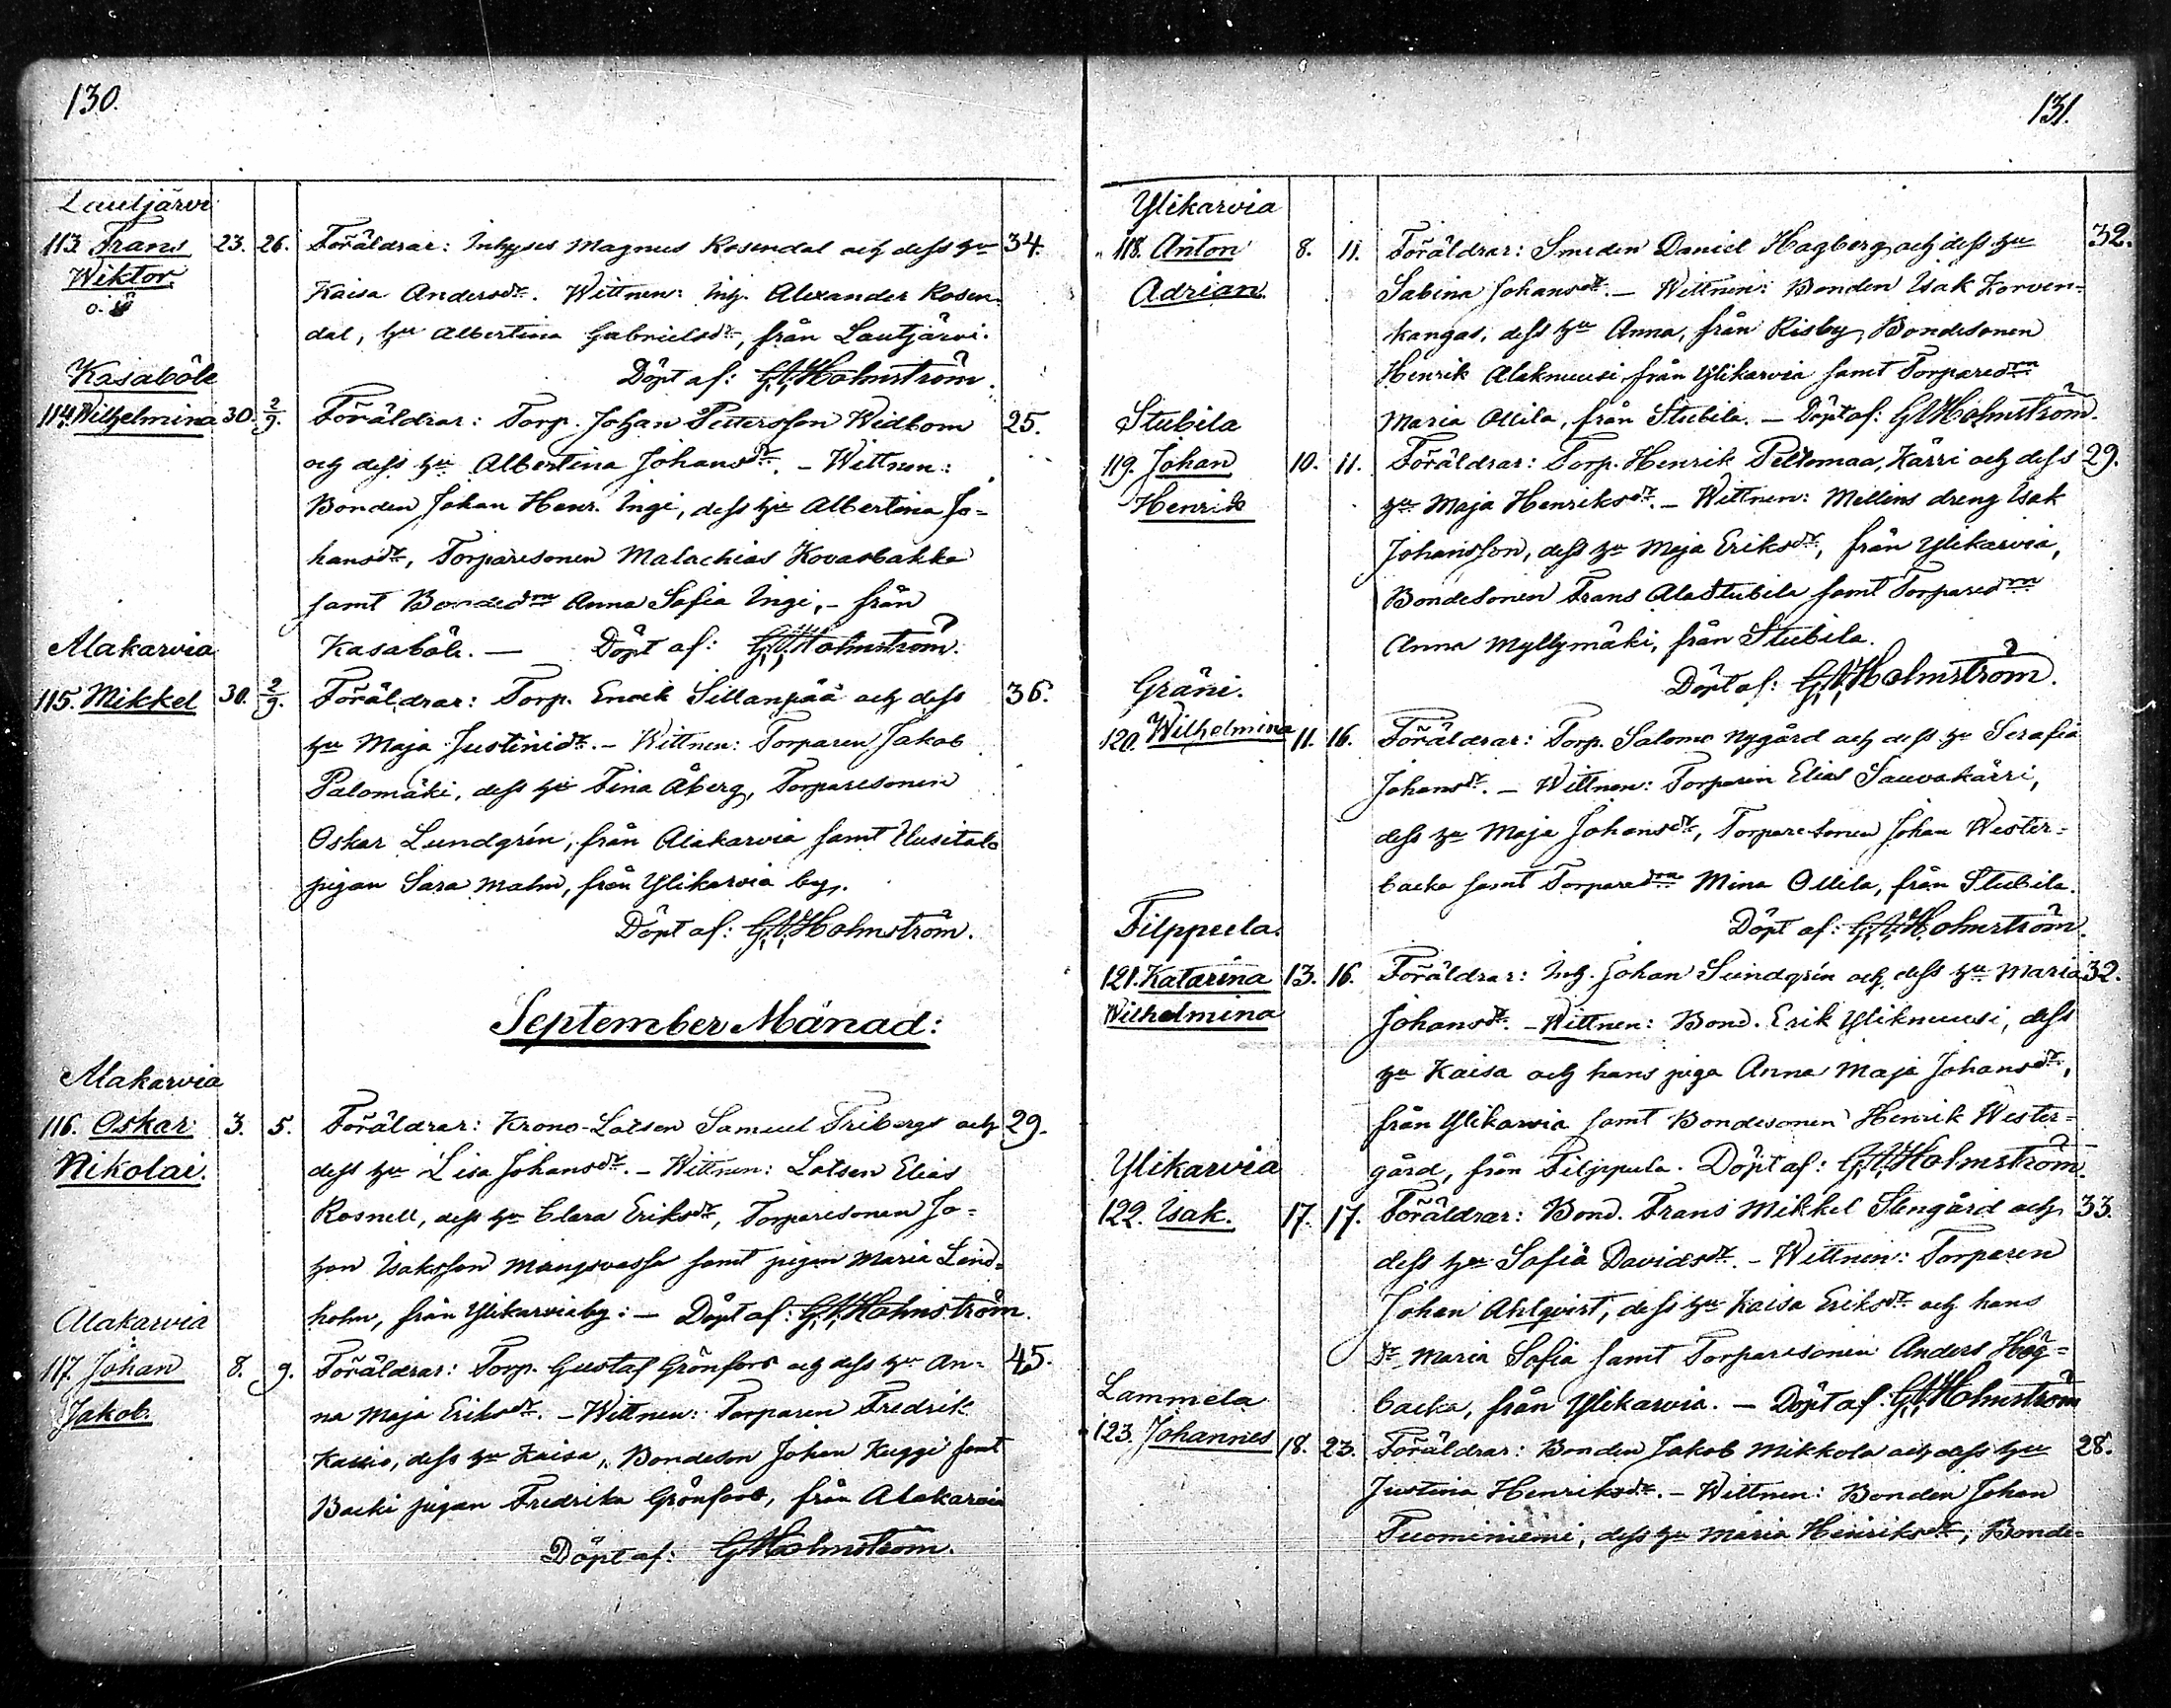 130.
Lautjärvi
113. Frans 23. 26. Föräldrar: Inhyses Magnus Rosendal och dess hu 34.
Wiktor.
o. ä
Kaisa Andersdr. Wittnen: Inh. Alexander Rosen-
dal, hu Albertina Gabrielsdr, från Lautjärvi.
Döpt af: G.A.Holmström.
Kasaböle
114. Wilhelmina 30. 2/9. Föräldrar: Torp. Johan Pettersson Widbom 25.
och dess hu Albertina Johansdr. – Wittnen:
Bonden Johan Henr. Ingi, dess hu Albertina Jo-
hansdr, Torparesonen Malachias Kovasbakka
samt Bondedrn Anna Sofia Ingi, – från
Kasaböle. — Döpt af: G.A.Holmström.
Alakarvia
115. Mikkel 30. 2/9. Föräldrar: Torp. Enok Sillanpää och dess 36.
hu Maja Justinidr. – Wittnen: Torparen Jakob
Palomäki, dess hu Fina Åberg, Torparesonen
Oskar Lundgrén, från Alakarvia samt Uusitalo
pigan Sara Malm, från Ylikarvia by.
Döpt af: G.A.Holmström.
September Månad:
Alakarvia
116. Oskar 3. 5. Föräldrar: Krono-Lotsen Samuel Friberg och 29.
Nikolai.
dess hu Lisa Johansdr. – Wittnen: Lotsen Elias
Rosnell, dess hu Clara Eriksdr, Torparesonen Jo-
han Isaksson samt pigan Maria Lind-
holm, från Ylikarviaby: – Döpt af: G.A.Holmström.
Alakarvia
117. Johan 8. 9. Föräldrar: Torp. Gustaf Grönfors och dess hu An- 45.
Jakob.
na Maja Eriksdr. – Wittnen: Torparen Fredrik
dess hu Kaisa, Bondeson Johan Kuggi samt
Backi pigan Fredrika Grönfors, från Alakarvia
Döpt af: G.A.Holmström.
131.
Ylikarvia
118. Anton 8. 11. Föräldrar: Smeden Daniel Hagberg och dess hu 32.
Adrian.
Sabina Johansdr. – Wittnen: Bonden Isak Korven-
kangas, dess hu Anna, från Risby, Bondesonen
Henrik Alaknuusi från Ylikarvia samt Torparedrn
Maria Ollila, från Stubila. – Döpt af: G.A.Holmström.
Stubila
119. Johan 10. 11. Föräldrar: Torp. Henrik Peltomaa, Kärri och dess 29.
Henrik
hu Maja Henriksdr. – Wittnen: Mellins dreng Isak
Johansson, dess hu Maja Eriksdr, från Ylikarvia,
Bondesonen Frans AlaStubila samt Torparedrn
Anna Myllymäki, från Stubila.
Döpt af: G.A.Holmström.
Gräni.
120. Wilhelmina 11. 16. Föräldrar: Torp. Salomo Nygård och dess hu Serafia
Johansdr. – Wittnen: Torparen Elias Sauvakärri,
dess hu Maja Johansdr, Torparesonen Johan Wester-
backa samt Torparedrn Mina Ollila, från Stubila.
Döpt af: G.A.Holmström.
Filppula.
121. Katarina 13. 16. Föräldrar: Inh. Johan Sundgrén och dess hu Maria 32.
Wilhelmina
Johansdr. – Wittnen: Bond. Erik Yliknuusi, dess
hu Kaisa och hans piga Anna Maja Johansdr,
från Ylikarvia samt Bondesonen Henrik Wester-
gård, från Filppula. Döpt af: G.A.Holmström.
Ylikarvia
122. Isak. 17. 17. Föräldrar: Bond. Frans Mikkel Stengård och 33.
dess hu Sofia Davidsdr. – Wittnen: Torparen
Johan Ahlqvist, dess hu Kaisa Eriksdr och hans
dr Maria Sofia samt Torparesonen Anders Hög-
backa, från Ylikarvia. – Döpt af: G.A.Holmström
Lammela
123. Johannes 18. 23. Föräldrar: Bonden Jakob Mikkola och dess hu 28.
Justina Henriksdr. – Wittnen: Bonden Johan
Tuominiemi, dess hu Maria Henriksdr, Bonde-